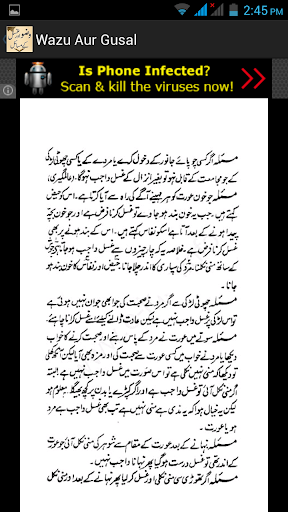 2:45 PM
Wazu Aur Gusal
Is Phone Infected?
Scan & kill the viruses now!
مسئلہ اگر کسی چوپائے جانور کے دخول کرے یا مردے کے یا کسی چھوٹی لڑکی
کے جو مجامعت کے قابل نہ ہو تو بغیر انزال کے غسل واجب نہ ہوگا، عالمگیری،
مسئلہ جو خون عورت کو ہر مہینے آگے کی راہ سے آیا کرتا ہے، اس کو حیض
کہتے ہیں، جب یہ خون بند ہو جاوے تو غسل کرنا فرض ہے اور جو خون بچہ
پیدا ہونے کے بعد آتا ہے اسکو نفاس کہتے ہیں، اس کے بند ہونے پر بھی
غسل کرنا فرض ہے، خلاصہ یہ کہ چار چیزوں سے غسل واجب ہو جاتا ہے، جوش
کے ساتھ منی نکلنا، مرد کی سپاری کا اندر چلا جانا، حیض اور نفاس کا خون بند ہو
جانا۔
مسئلہ چھوٹی لڑکی سے اگر مرد نے صحبت کی جو ابھی جوان نہیں ہوئی ہے
تو اس لڑکی پر غسل واجب نہیں ہے لیکن عادت ڈالنے کیلئے اس سے غسل کرانا چاہئے۔
مسئلہ سوتے میں عورت نے مرد کے پاس رہنے اور صحبت کرنے کا خواب
دیکھا یا مرد نے خواب میں کسی عورت سے صحبت کی اور مزہ بھی آیا لیکن آنکھ کھلی
تو دیکھا کہ منی نہیں نکلی ہے تو اس صورت میں غسل واجب نہیں ہے البتہ
اگر منی نکل آئی تو غسل واجب ہے اور اگر کپڑے یا بدن پر کچھ بھیگا معلوم ہو
لیکن یہ خیال ہوا کہ یہ مذی ہے منی نہیں ہے تب بھی غسل واجب ہے مرد ہو
یا عورت۔
مسئلہ نہانے کے بعد عورت کے مقام سے شوہر کی منی نکل آئی جو عورت
کے اندر تھی تو غسل درست ہو گیا پھر نہانا واجب نہیں ہے۔
مسئلہ اگر تھوڑی سی منی نکلی اور غسل کر لیا پھر نہانے کے بعد اور منی نکل